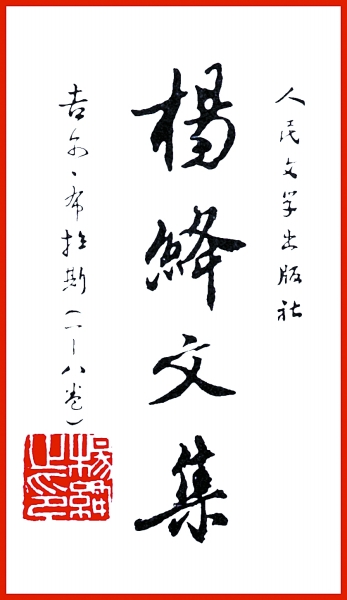 人民文学出版社
楊絳文集
吉尔·布拉斯（一—八卷）
楊絳
之印